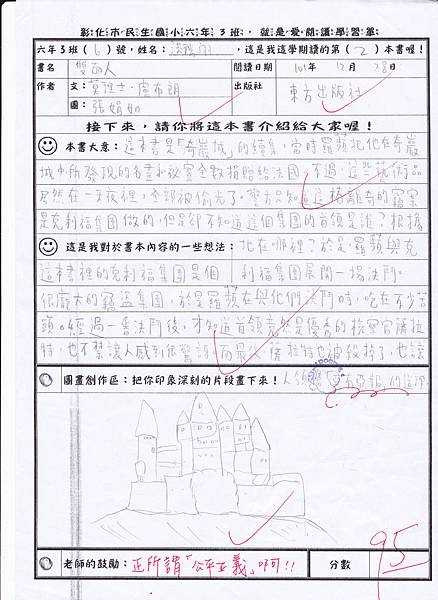 彰化市民生國小六年3班，就是愛閱讀學習單
六年3班(6)號，姓名：，這是我這學期讀的第(2)本書喔！
書名 雙面人 閱讀日期 101年 12月 28日
作者 文：莫理士．盧布朗 出版社 東方出版社
圖：張娟如
接下來，請你將這本書介紹給大家喔！
本書大意：這本書是「奇巖城」的續集，當時羅蘋把他在奇巖
城中所發現的名畫和祕寶全數捐贈給法國，不過，這些藝術品
居然在一夜裡，全部被偷光了。警方只知道這樁離奇的竊案
是克利福集團做的，但是卻不知道這個集團的首領是誰？根據
地在哪裡？於是羅蘋與克
利福集團展開一場決鬥。
這是我對於書本內容的一些想法：
這本書裡的克利福集團是個
很龐大的竊盜集團，於是羅蘋在與他們決鬥時，吃在不少苦
頭。經過一番決鬥後，才知道首領竟然是優秀的檢察官薩拉
特，也不禁讓人感到很驚訝，而最後薩拉特也被殺掉了，也讓
人領悟 的道理。
圖畫創作區：把你印象深刻的片段畫下來！
老師的鼓勵：正所謂「公平正義」啊！！ 分數 95